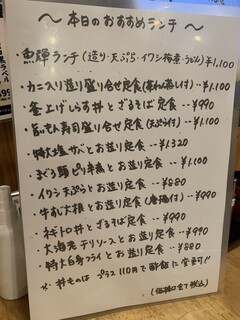 ～本日のおすすめランチ～
魚輝ランチ(造り・天ぷら・イワシ梅煮・うどん)¥1,100
・カニ入り造り盛り合せ定食(茶わん蒸し付)--¥1,100
・釜上げしらす丼とざるそば定食--¥990
・にぎり寿司盛り合せ定食(天ぷら付)--¥1,100
・特大塩サバとお造り定食--¥1,320
・まぐろ ピリ辛 とお造り定食--¥1,100
・イワシ天ぷらとお造り定食--¥880
・牛すじ大根とお造り定食(唐揚付)--¥990
・ネギトロ丼とざるそば定食--¥990
・大海老チリソースとお造り定食--¥990
・特大白身フライとお造り定食--¥880
※丼ものは プラス110円で酢飯に変更可!!
(価格は全て税込)